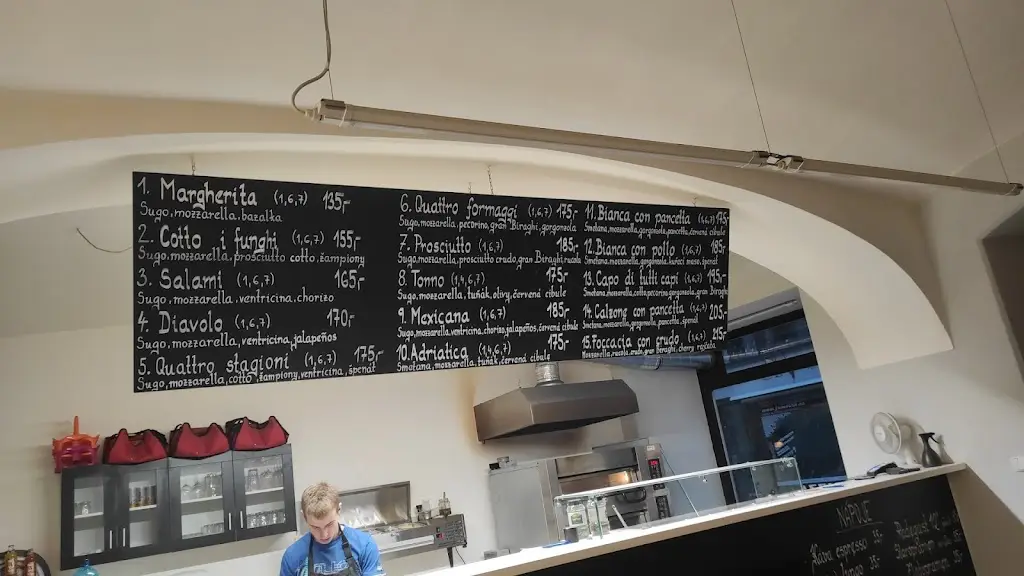 1. Margherita (1,6,7) 135,-
Sugo, mozzarella, bazalka
2. Cotto i funghi (1,6,7) 155,-
Sugo, mozzarella, prosciutto cotto, žampiony
3. Salami (1,6,7) 165,-
Sugo, mozzarella, ventricina, chorizo
4. Diavolo (1,6,7) 170,-
Sugo, mozzarella, ventricina, jalapeños
5. Quattro stagioni (1,6,7) 175,-
Sugo, mozzarella, cotto, žampiony, ventricina, špenát
6. Quattro formaggi (1,6,7) 175,-
Sugo, mozzarella, pecorino, gran Biraghi, gorgonzola
7. Prosciutto (1,6,7) 185,-
Sugo, mozzarella, prosciutto crudo, gran Biraghi, rucola
8. Tonno (1,4,6,7) 175,-
Sugo, mozzarella, tuňák, olivy, červená cibule
9. Mexicana (1,6,7) 185,-
Sugo, mozzarella, ventricina, chorizo, jalapeños, červená cibule
10. Adriatica (1,4,6,7) 175,-
Smetana, mozzarella, tuňák, červená cibule
11. Bianca con pancetta (1,6,7) 175,-
Smetana, mozzarella, gorgonzola, pancetta, červená cibule
12. Bianca con pollo (1,6,7) 185,-
Smetana, mozzarella, gorgonzola, kuřecí maso, špenát
13. Capo di tutti capi (1,6,7) 195,-
Smetana, mozzarella, cotto, pecorino, gorgonzola, gran Biraghi
14. Calzone con pancetta (1,6,7) 205,-
Smetana, mozzarella, gorgonzola, pancetta, špenát
15. Foccacia con crudo (1,6,7) 215,-
Mozzarella, rucola, crudo, gran biraghi, cherry rajčata
NÁPOJE
espresso